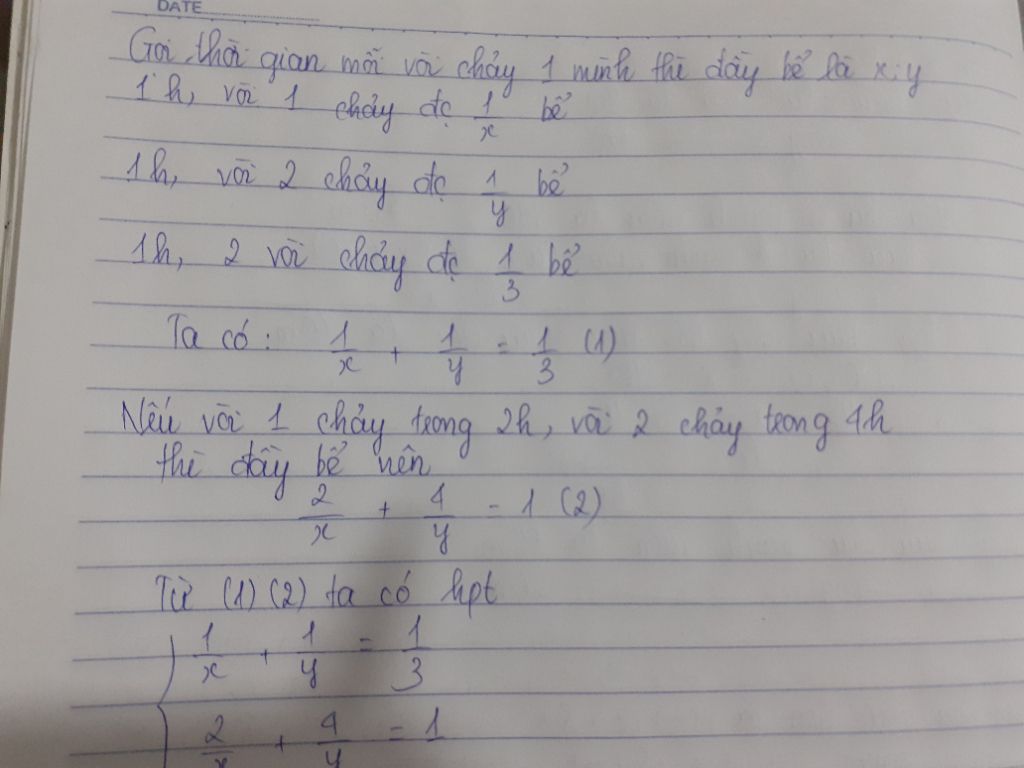 DATE
Gọi thời gian mỗi vòi chảy 1 mình thì đầy bể là x; y
1h, vòi 1 chảy đc 1/x bể
1h, vòi 2 chảy đc 1/y bể
1h, 2 vòi chảy đc 1/3 bể
Ta có: 1/x + 1/y = 1/3 (1)
Nếu vòi 1 chảy trong 2h, vòi 2 chảy trong 4h
thì đầy bể nên
2/x + 4/y = 1 (2)
Từ (1) (2) ta có hpt
{ 1/x + 1/y = 1/3
2/x + 4/y = 1